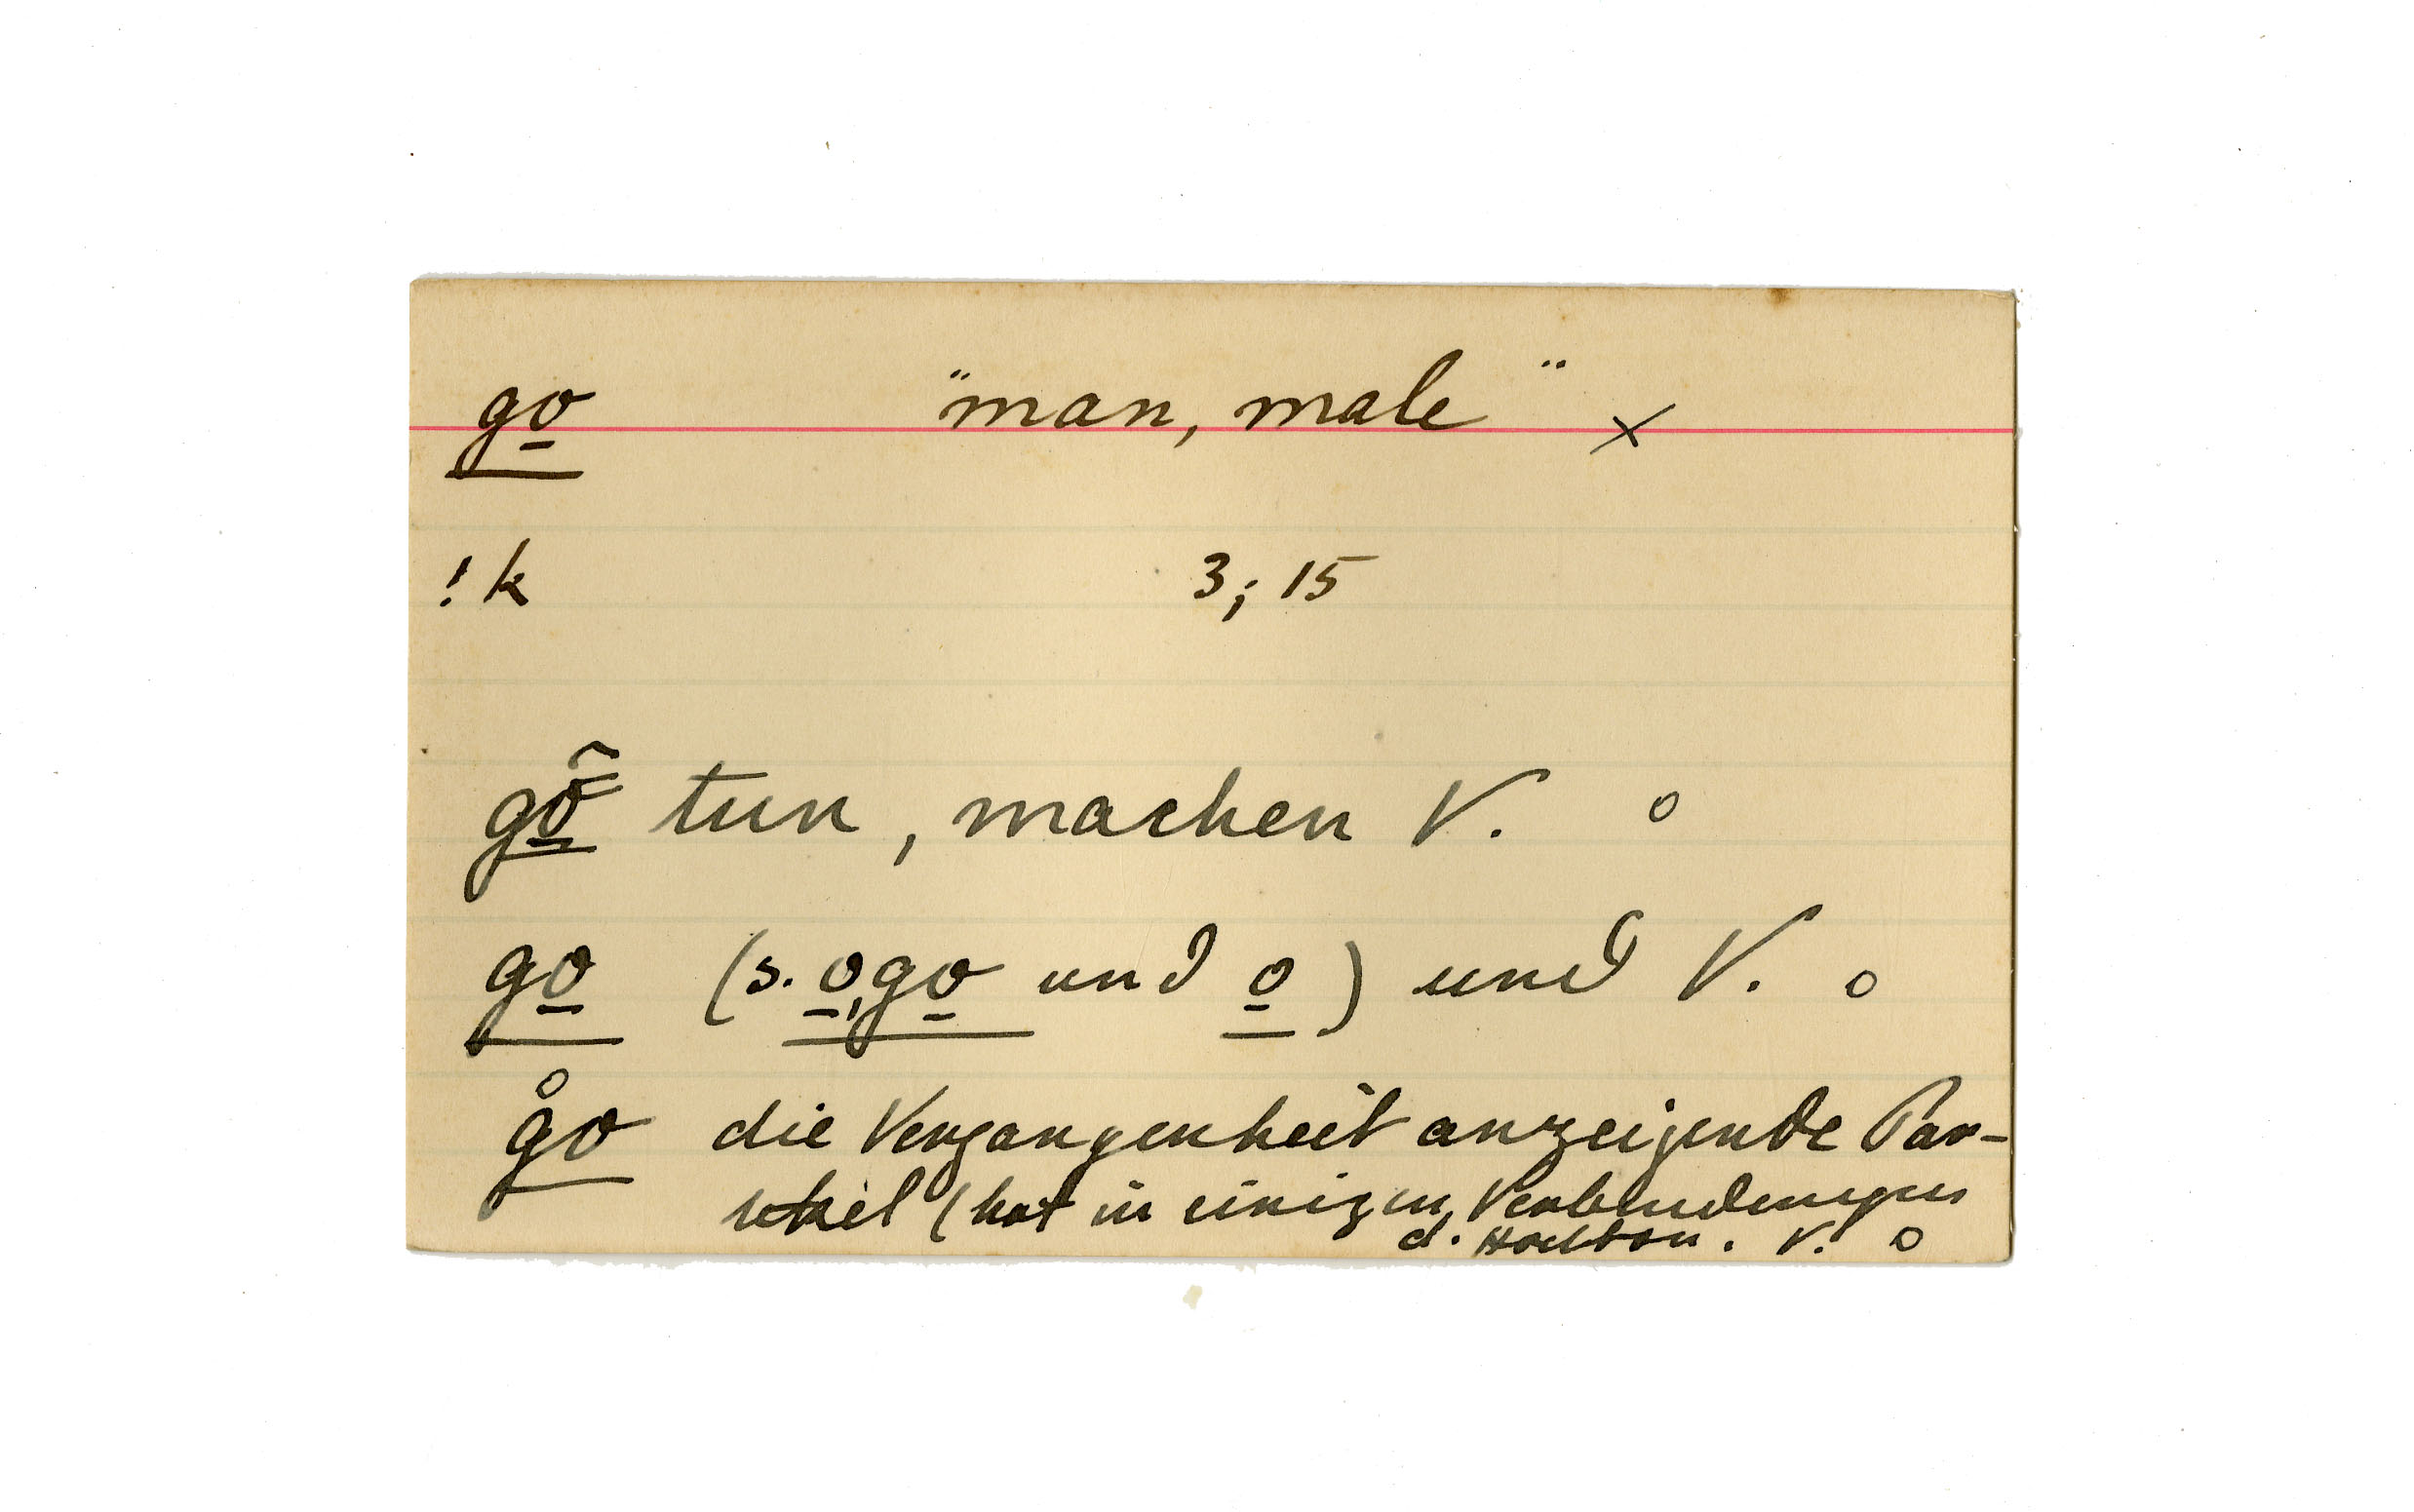 go̱ "man, male" ×
!k 3; 15
gõ̱̂ tun, machen V. o
go̱ (s. o̱,go̱ und o̱) und V. o
g̊o die Vergangenheit anzeigende Par-
tikel (hat in einigen Verbindungen
d. Hochton. V. o